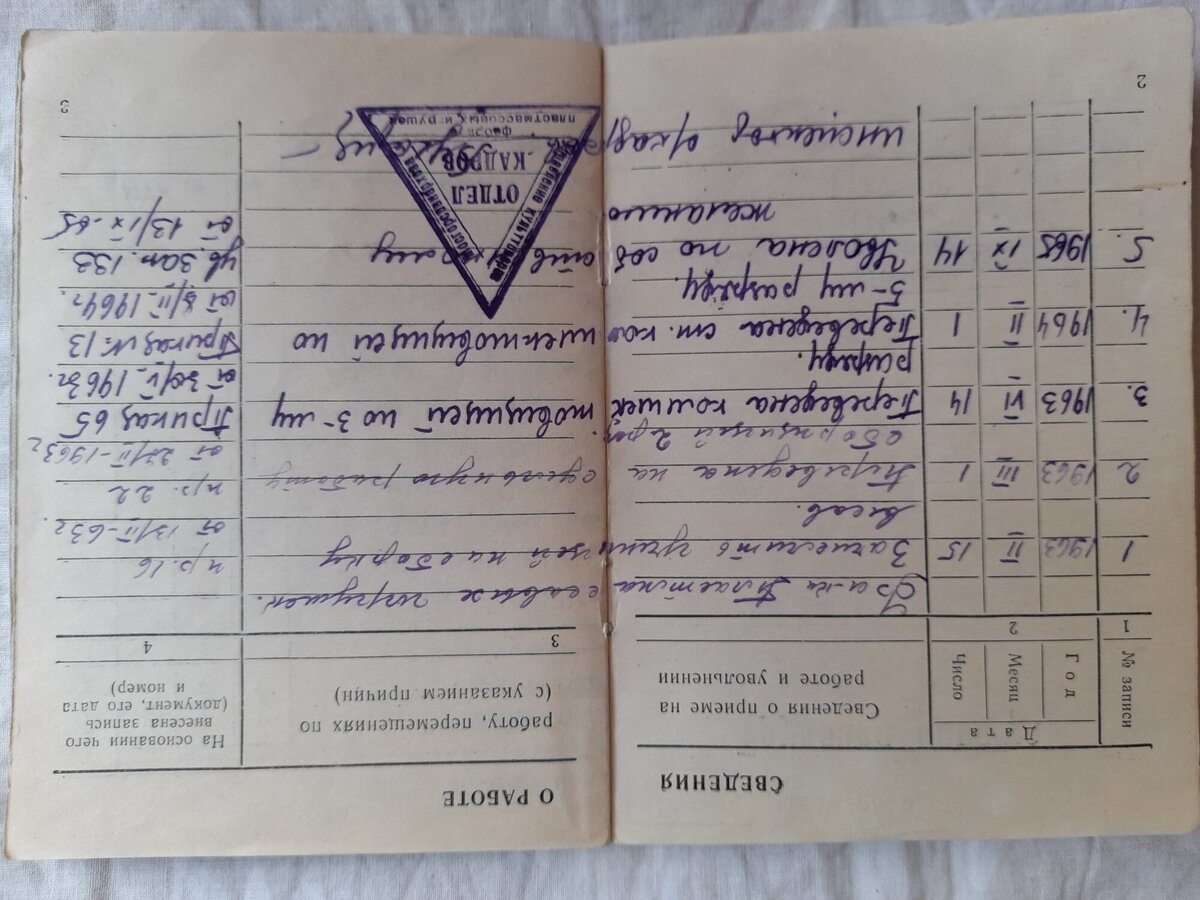 СВЕДЕНИЯ О РАБОТЕ
№ записи
Дата
Год
Месяц
Число
Сведения о приеме на работу, перемещениях по
работе и увольнении (с указанием причин)
На основании чего
внесена запись
(документ, его дата
и номер)
1 2 3 4
Ф-ка Пластмассовых игрушек.
1 1963 II 15 Зачислить ученицей на сборку пр. 16
от 13/II-63г.
2 1963 III 1 Переведена на сдельную работу пр. 22
сборщицей 2 раз. от 27/II-1963г.
3. 1963 VI 14 Переведена комплектовщицей по 3-му Приказ 65
разряду. от 30/V 1963г.
4. 1964 II 1 Переведена ст. комплектовщицей по Приказ № 13
5-му разряду. от 8/II 1964г.
5. 1965 IX 14 Уволена по собственному ув. зап. 133
желанию от 13/IX-65
Инспектор о/кадров
Мосгорсовнархоз
Управление культтоваров
фабрика
пластмассовых игрушек
ОТДЕЛ
КАДРОВ
2
3